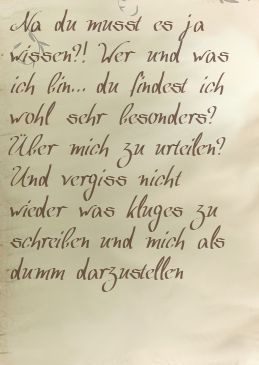 Na du musst es ja
wissen?! Wer und was
ich bin... du findest ich
wohl sehr besonders?
Über mich zu urteilen?
Und vergiss nicht
wieder was kluges zu
schreiben und mich als
dumm darzustellen